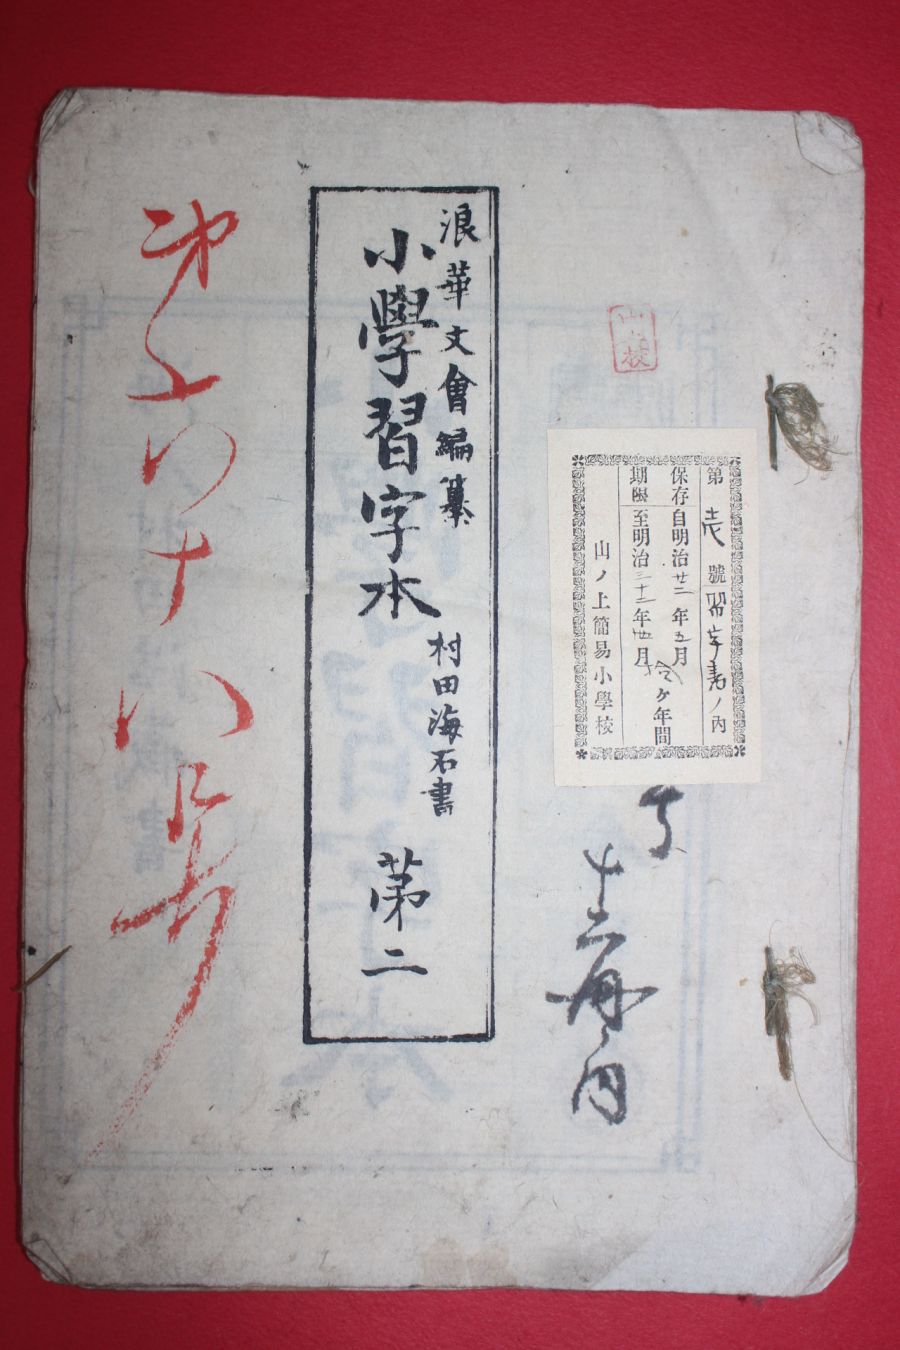 第壱號習字書ノ內
保存自明治廿二年五月
拾ケ年間
期限至明治三十二年四月
山ノ上簡易小學校
十二冊之內
浪華文會編纂
小學習字本
村田海石書
第二
第六十八号